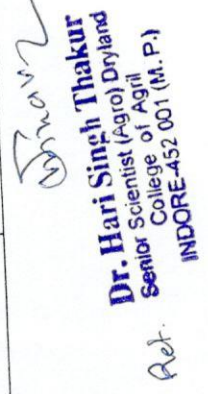 Dr. Hari Singh Thakur
Senior Scientist (Agro) Dryland
College of Agril
INDORE-452 001 (M. P.)